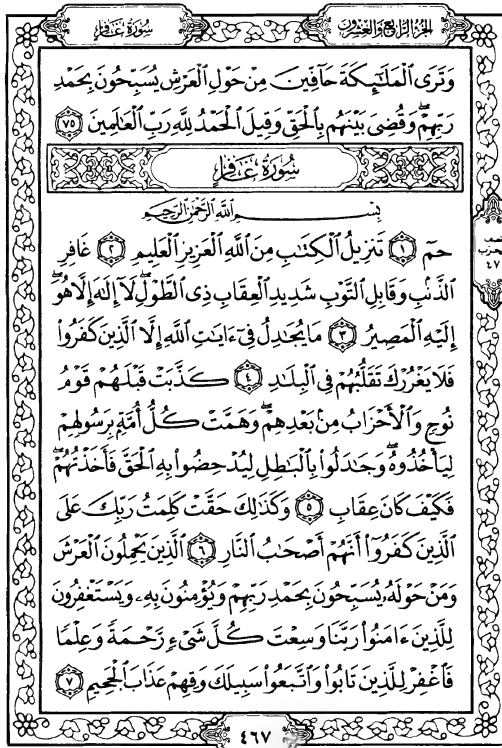 الجُزْءُ الرَّابِعُ وَالعِشْرُون
سُورَةُ غَافِرٍ
وَتَرَى ٱلْمَلَٰٓئِكَةَ حَآفِّينَ مِنْ حَوْلِ ٱلْعَرْشِ يُسَبِّحُونَ بِحَمْدِ
رَبِّهِمْۖ وَقُضِىَ بَيْنَهُم بِٱلْحَقِّ وَقِيلَ ٱلْحَمْدُ لِلَّهِ رَبِّ ٱلْعَٰلَمِينَ ٧٥
سُورَةُ غَافِرٍ
بِسْمِ ٱللَّهِ ٱلرَّحْمَٰنِ ٱلرَّحِيمِ
حمٓ ١ تَنزِيلُ ٱلْكِتَٰبِ مِنَ ٱللَّهِ ٱلْعَزِيزِ ٱلْعَلِيمِ ٢ غَافِرِ
ٱلذَّنۢبِ وَقَابِلِ ٱلتَّوْبِ شَدِيدِ ٱلْعِقَابِ ذِى ٱلطَّوْلِۖ لَآ إِلَٰهَ إِلَّا هُوَۖ
إِلَيْهِ ٱلْمَصِيرُ ٣ مَا يُجَٰدِلُ فِىٓ ءَايَٰتِ ٱللَّهِ إِلَّا ٱلَّذِينَ كَفَرُوا۟
فَلَا يَغْرُرْكَ تَقَلُّبُهُمْ فِى ٱلْبِلَٰدِ ٤ كَذَّبَتْ قَبْلَهُمْ قَوْمُ
نُوحٍ وَٱلْأَحْزَابُ مِنۢ بَعْدِهِمْۖ وَهَمَّتْ كُلُّ أُمَّةٍۭ بِرَسُولِهِمْ
لِيَأْخُذُوهُۖ وَجَٰدَلُوا۟ بِٱلْبَٰطِلِ لِيُدْحِضُوا۟ بِهِ ٱلْحَقَّ فَأَخَذْتُهُمْۖ
فَكَيْفَ كَانَ عِقَابِ ٥ وَكَذَٰلِكَ حَقَّتْ كَلِمَتُ رَبِّكَ عَلَى
ٱلَّذِينَ كَفَرُوٓا۟ أَنَّهُمْ أَصْحَٰبُ ٱلنَّارِ ٦ ٱلَّذِينَ يَحْمِلُونَ ٱلْعَرْشَ
وَمَنْ حَوْلَهُۥ يُسَبِّحُونَ بِحَمْدِ رَبِّهِمْ وَيُؤْمِنُونَ بِهِۦ وَيَسْتَغْفِرُونَ
لِلَّذِينَ ءَامَنُوا۟ رَبَّنَا وَسِعْتَ كُلَّ شَىْءٍ رَّحْمَةً وَعِلْمًا
فَٱغْفِرْ لِلَّذِينَ تَابُوا۟ وَٱتَّبَعُوا۟ سَبِيلَكَ وَقِهِمْ عَذَابَ ٱلْجَحِيمِ ٧
نصف
الحزب
٤٧
٤٦٧